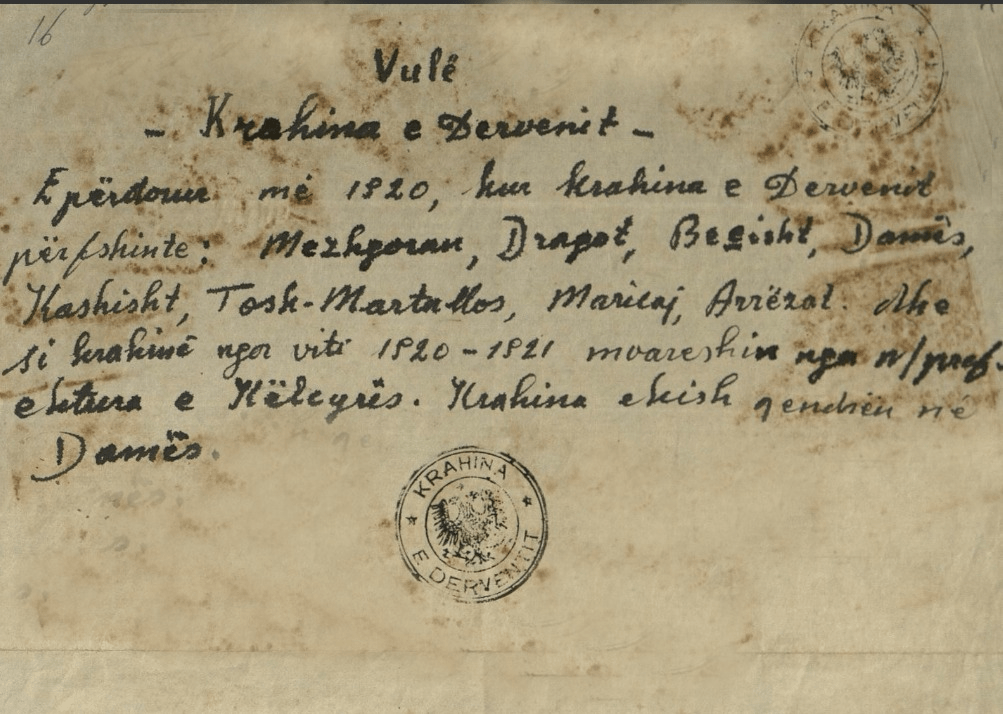 16
Vulë
- Krahina e Dervenit -
E përdorur më 1920, kur krahina e Dervenit
përfshinte: Mezhgoran, Dragot, Beçisht, Damës,
Kashisht, Tosh-Martallos, Maricaj, Arrëzat. dhe
si krahinë nga viti 1920-1921 mvareshin nga n/pref-
ektura e Këlcyrës. Krahina ekish qendrën në
Damës.
KRAHINA
E DERVENTIT